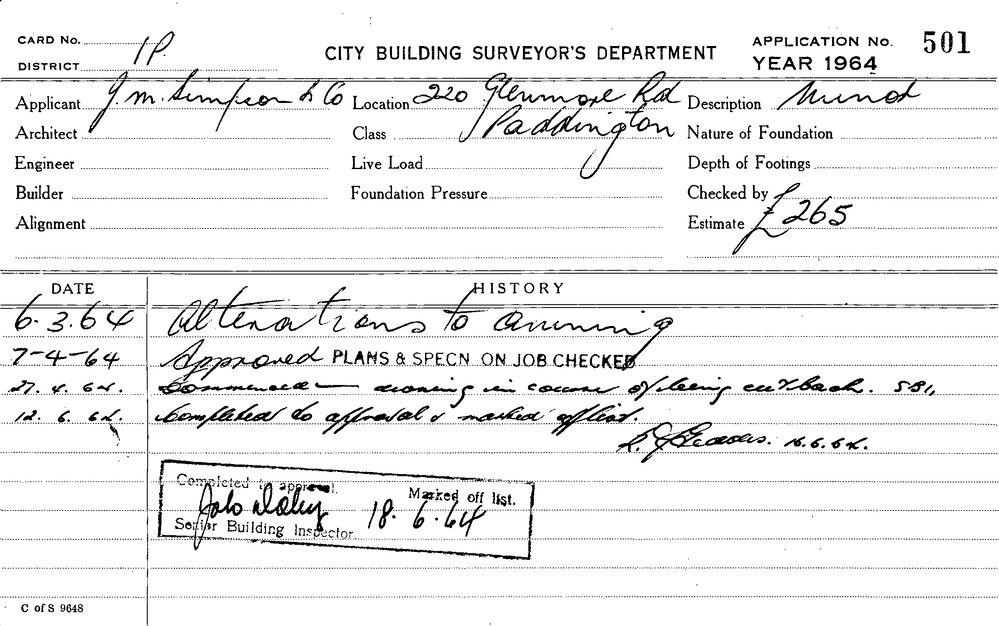 CARD No.
DISTRICT 1P.
CITY BUILDING SURVEYOR'S DEPARTMENT
APPLICATION No. 501
YEAR 1964
Applicant J. M. Simpson & Co Location 220 Glenmore Rd Description Minor
Architect Class Paddington Nature of Foundation
Engineer Live Load Depth of Footings
Builder Foundation Pressure Checked by
Alignment Estimate £265
DATE HISTORY
6.3.64 Alterations to awning
7-4-64 Approved PLANS & SPECN ON JOB CHECKED
27. 4. 64. Commenced — awning in course of being cut back.
12. 6. 64. Completed to approval & marked off list.
16.6.64.
Completed to approval. Marked off list.
18.6.64
Senior Building Inspector
C of S 9648